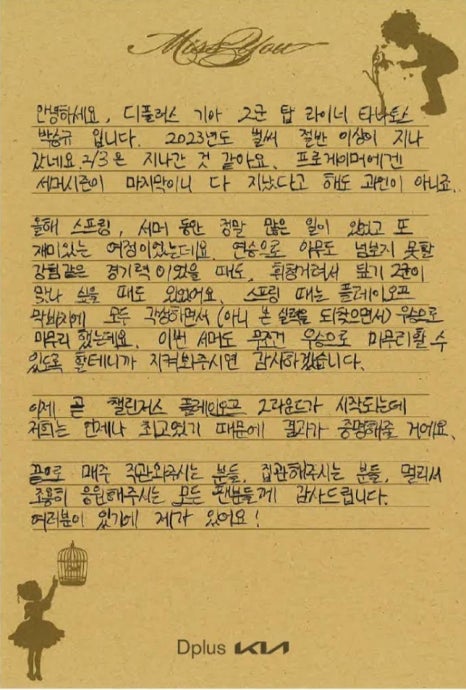 Miss You
안녕하세요, 디플러스 기아 2군 탑 라이너 타나토스
박승규 입니다. 2023년도 벌써 절반 이상이 지나
갔네요. 2/3은 지나간 것 같아요. 프로게이머에겐
서머시즌이 마지막이니 다 지났다고 해도 과언이 아니죠.
올해 스프링, 서머 동안 정말 많은 일이 있었고 또
재미있는 여정이었는데요. 연승으로 아무도 넘보지 못할
강팀같은 경기력이었을 때도, 휘청거려서 담기 2군이
맞나 싶을 때도 있었어요. 스프링 때는 플레이오프
막바지에 모두 각성하면서 (아니 본 실력을 되찾으면서) 우승으로
마무리 했는데요. 이번 서머도 무조건 우승으로 마무리할 수
있도록 할테니까 지켜봐주시면 감사하겠습니다.
이제 곧 챌린저스 플레이오프 2라운드가 시작되는데
저희는 언제나 최고였기 때문에 결과가 증명해줄 거에요.
끝으로 매주 직관와주시는 분들, 집관해주시는 분들, 멀리서
조용히 응원해주시는 모든 팬분들께 감사드립니다.
여러분이 있기에 제가 있어요!
Dplus KIA